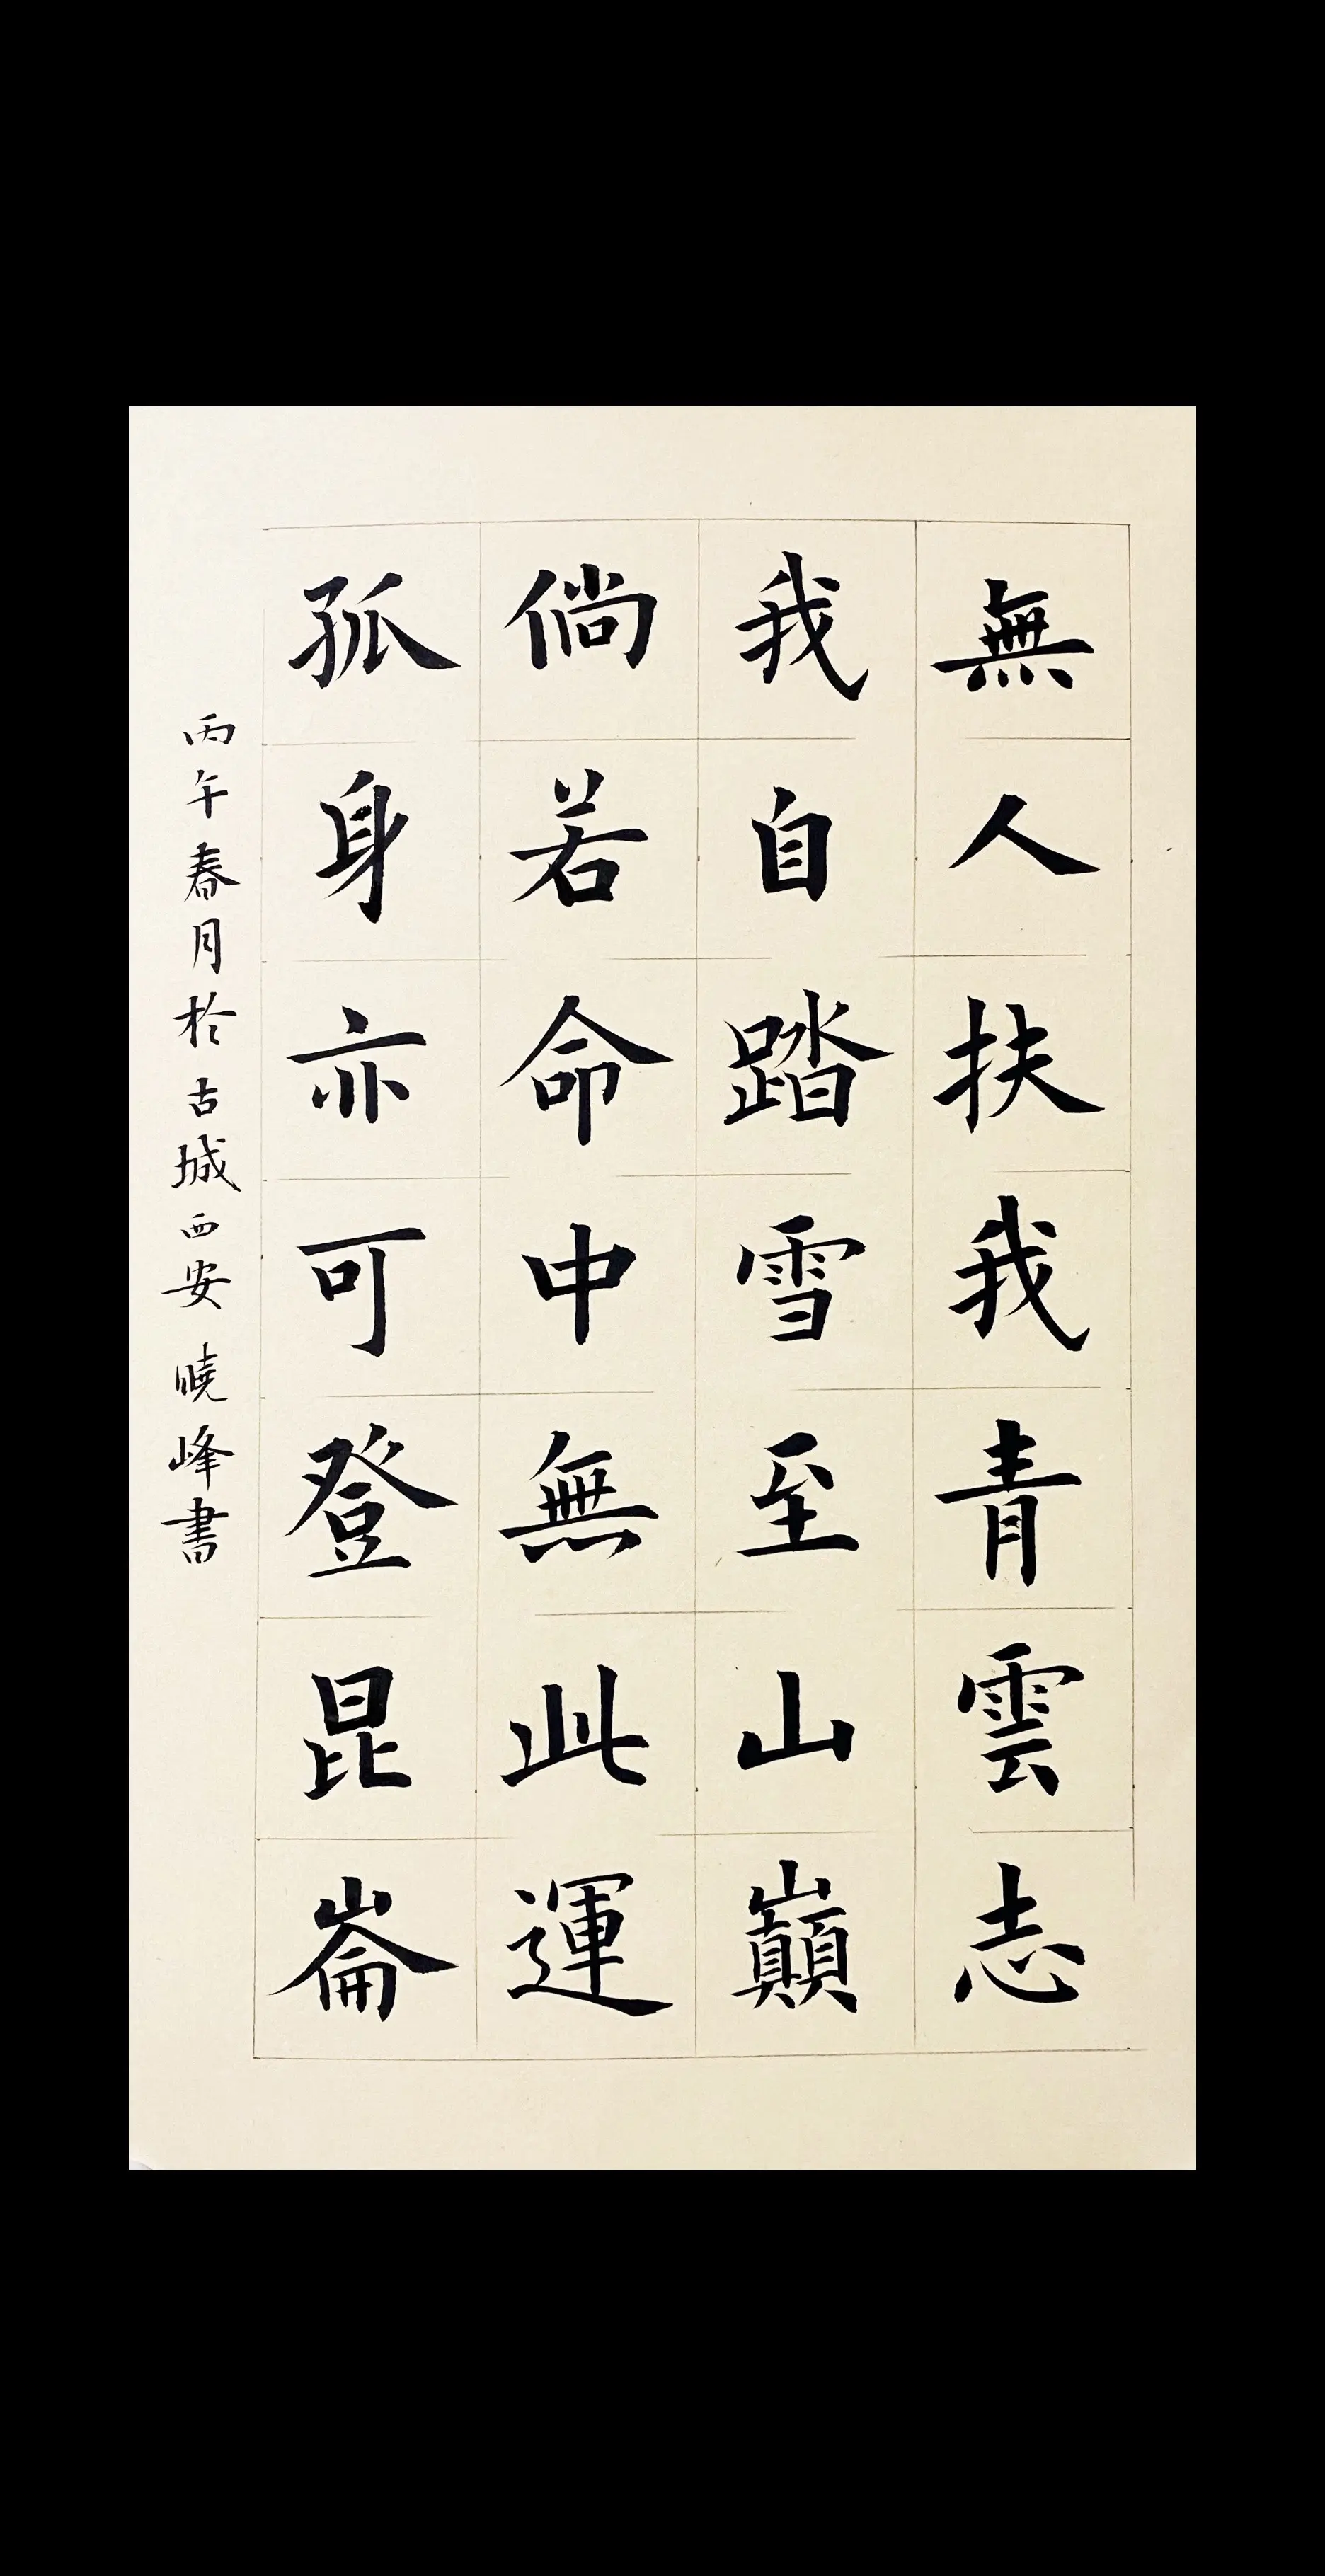 無人扶我青雲志
我自踏雪至山巔
倘若命中無此運
孤身亦可登昆崙
丙午春月於古城西安 曉峰書